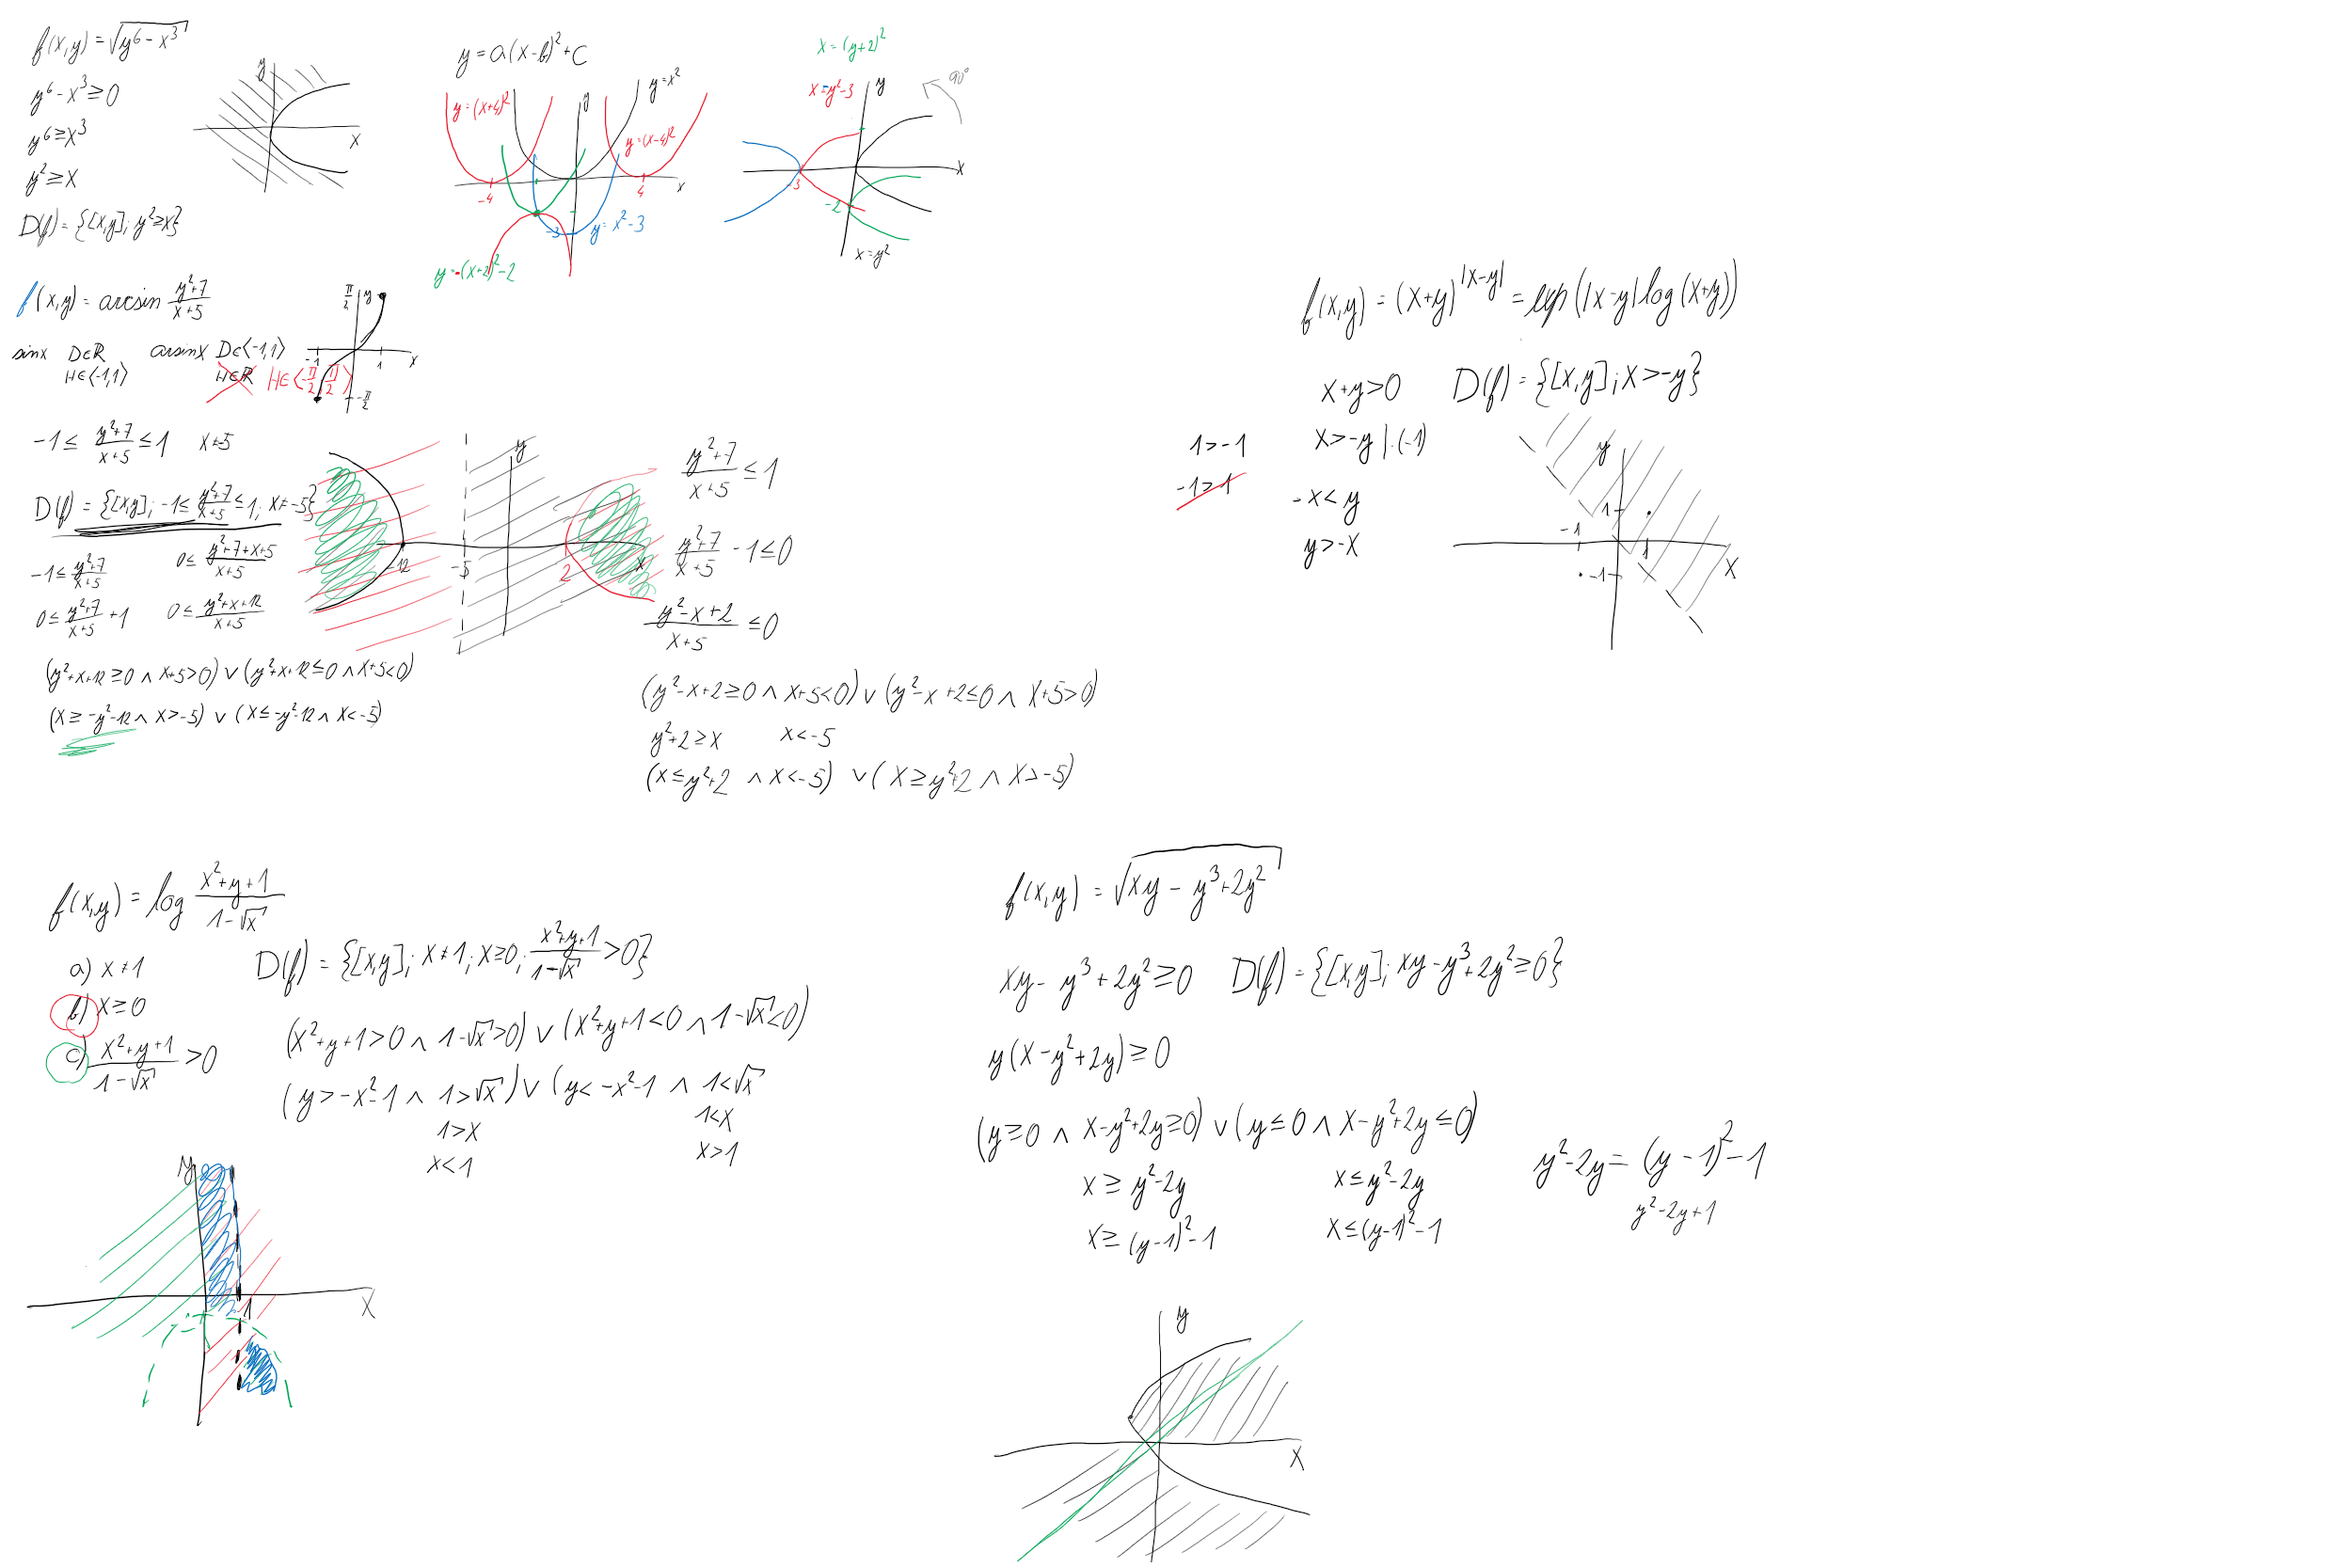 f(x,y) = √(y⁶ - x³)
y⁶ - x³ ≥ 0
y⁶ ≥ x³
y² ≥ x
D(f) = {[x,y]; y² ≥ x}
y
x
y = a(x-b)² + c
y = (x+4)²
y
y = x²
y = (x-4)²
-4
4
x
-3
y = x² - 3
y = -(x+2)² - 2
x = (y+2)²
x = y² - 3
y
90°
-3
x
-2
x = y²
f(x,y) = arcsin (y²+7)/(x+5)
sinx D∈ℝ
H∈⟨-1,1⟩
arsinx D∈⟨-1,1⟩
H∈ℝ H∈⟨-π/2, π/2⟩
π/2
y
-1
1
x
-π/2
-1 ≤ (y²+7)/(x+5) ≤ 1 x ≠ 5
D(f) = {[x,y]; -1 ≤ (y²+7)/(x+5) ≤ 1; x ≠ -5}
-1 ≤ (y²+7)/(x+5)
0 ≤ (y²+7+x+5)/(x+5)
0 ≤ (y²+7)/(x+5) + 1
0 ≤ (y²+x+12)/(x+5)
(y²+x+12 ≥ 0 ∧ x+5>0) ∨ (y²+x+12 ≤ 0 ∧ x+5<0)
(x ≥ -y²-12 ∧ x>-5) ∨ (x ≤ -y²-12 ∧ x<-5)
y
-12
-5
2
x
(y²+7)/(x+5) ≤ 1
(y²+7)/(x+5) - 1 ≤ 0
(y²-x+2)/(x+5) ≤ 0
(y²-x+2 ≥ 0 ∧ x+5<0) ∨ (y²-x+2 ≤ 0 ∧ x+5>0)
y²+2 ≥ x x<-5
(x ≤ y²+2 ∧ x<-5) ∨ (x ≥ y²+2 ∧ x>-5)
f(x,y) = (x+y)^|x-y| = exp(|x-y| log(x+y))
x+y>0 D(f) = {[x,y]; x>-y}
1>-1
-1>1
x>-y |·(-1)
-x<y
y>-x
y
1
-1
1
-1
x
f(x,y) = log (x²+y+1)/(1-√x)
a) x ≠ 1
b) x ≥ 0
c) (x²+y+1)/(1-√x) > 0
D(f) = {[x,y]; x ≠ 1; x ≥ 0; (x²+y+1)/(1-√x) > 0}
(x²+y+1>0 ∧ 1-√x>0) ∨ (x²+y+1<0 ∧ 1-√x<0)
(y>-x²-1 ∧ 1>√x) ∨ (y<-x²-1 ∧ 1<√x
1>x
1<x
x<1
x>1
y
1
x
-1
f(x,y) = √(xy - y³+2y²)
xy - y³ + 2y² ≥ 0 D(f) = {[x,y]; xy-y³+2y² ≥ 0}
y(x-y²+2y) ≥ 0
(y ≥ 0 ∧ x-y²+2y ≥ 0) ∨ (y ≤ 0 ∧ x-y²+2y ≤ 0)
x ≥ y²-2y
x ≤ y²-2y
x ≥ (y-1)²-1
x ≤ (y-1)²-1
y²-2y = (y-1)²-1
y²-2y+1
y
x